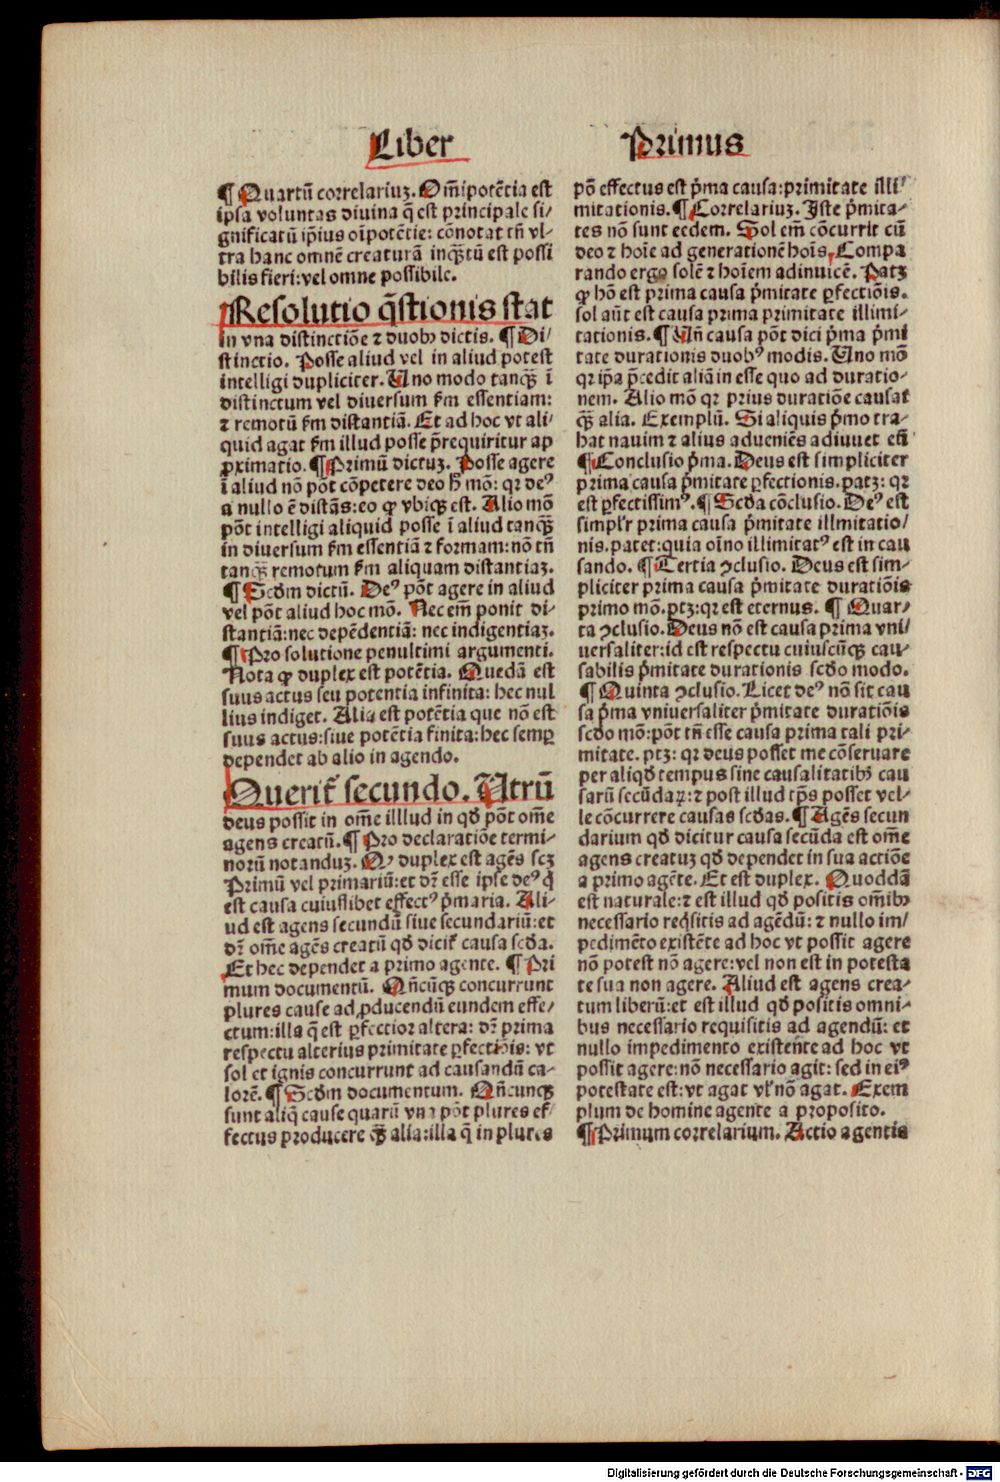 Liber Primus
¶ Quartū correlariuꝫ. Om̄ipotētia est
ipsa voluntas diuina q̄ est principale si/
gnificatū ip̄ius oīpotētie: cōnotat tn̄ vl/
tra hanc omnē creaturā inqꝫtū est possi
bilis fieri: vel omne possibile.
Resolutio q̄stionis stat
in vna distinctiōe ⁊ duobꝫ dictis. ¶ Di/
stinctio. Posse aliud vel in aliud potest
intelligi dupliciter. Uno modo tanqꝫ̄ ī
distinctum vel diuersum ẜm essentiam:
⁊ remotū ẜm distantiā. Et ad hoc vt ali/
quid agat ẜm illud posse p̄requiritur ap
ꝓximatio. ¶ Primū dictuꝫ. Posse agere
ī aliud nō pōt cōpetere deo hͦ mō: qꝛ deꝰ
a nullo ē distās: eo ꝙ vbiqꝫ est. Alio mō
pōt intelligi aliquid posse ī aliud tanqꝫ̄
in diuersum ẜm essentiā ⁊ formam: nō tn̄
tanqꝫ̄ remotum ẜm aliquam distantiaꝫ.
¶ Scd̄m dictū. Deꝰ pōt agere in aliud
vel pōt aliud hoc mō. Nec em̄ ponit di/
stantiā: nec depēdentiā: nec indigentiaꝫ.
¶ Pro solutione penultimi argumenti.
Nota ꝙ duplex est potētia. Quedā est
suus actus seu potentia infinita: hec nul
lius indiget. Alia est potētia que nō est
suus actus: siue potētia finita: hec semꝑ
dependet ab alio in agendo.
Querit̃ secundo. Utrū
deus possit in om̄e illlud in qd̄ pōt om̄e
agens creatū. ¶ Pro declaratiōe termi/
norū notanduꝫ. Qꝫ duplex est agēs scꝫ
Primū vel primariū: et dr̄ esse ipse deꝰ q̇
est causa cuiuslibet effectꝰ p̄maria. Ali/
ud est agens secundū siue secundariū: et
dr̄ om̄e agēs creatū qd̄ dicit̃ causa scd̄a.
Et hec dependet a primo agente. ¶ Pri
mum documentū. Qn̄cūqꝫ concurrunt
plures cause ad ꝓducendū eundem effe/
ctum: illa q̄ est ꝑfectior altera: dr̄ prima
respectu alterius primitate ꝑfectiōis: vt
sol et ignis concurrunt ad causandū ca/
lorē. ¶ Scd̄m documentum. Qn̄cunqꝫ
sunt aliq̄ cause quarū vna pōt plures ef/
fectus producere qꝫ̄ alia: illa q̄ in plures
pō effectus est p̄ma causa: primitate illi/
mitationis. ¶ Correlariuꝫ. Iste p̄mita/
tes nō sunt eedem. Sol em̄ cōcurrit cū
deo ⁊ hoīe ad generationē hoīs, Compa
rando ergo solē ⁊ hoīem adinuicē. Patꝫ
ꝙ hō est prima causa p̄mitate ꝑfectiōis.
sol aūt est causa prima primitate illimi/
tationis. ¶ Un̄ causa pōt dici p̄ma p̄mi
tate durationis duobꝰ modis. Uno mō
qꝛ ip̄a p̄cedit aliā in esse quo ad duratio/
nem. Alio mō qꝛ prius duratiōe causat
qꝫ̄ alia. Exemplū. Si aliquis p̄mo tra/
hat nauim ⁊ alius adueniēs adiuuet eū
¶ Conclusio p̄ma. Deus est simpliciter
prima causa p̄mitate ꝑfectionis. patꝫ: qꝛ
est ꝑfectissimꝰ. ¶ Scd̄a cōclusio. Deꝰ est
simpl'r prima causa p̄mitate illmitatio/
nis. patet: quia oīno illimitatꝰ est in cau
sando. ¶ Tertia ↄclusio. Deus est sim/
pliciter prima causa p̄mitate duratiōis
primo mō. ptꝫ: qꝛ est eternus. ¶ Quar/
ta ↄclusio. Deus nō est causa prima vni/
uersaliter: id est respectu cuiuscūqꝫ cau/
sabilis p̄mitate durationis scd̄o modo.
¶ Quinta ↄclusio. Licet deꝰ nō sit cau
sa p̄ma vniuersaliter p̄mitate duratiōis
scd̄o mō: pōt tn̄ esse causa prima tali pri/
mitate. ptꝫ: qꝛ deus posset me cōseruare
per aliqd̄ tempus sine causalitatibꝫ cau
sarū secūdaꝝ: ⁊ post illud tp̄s posset vel/
le cōcurrere causas scd̄as. ¶ Agēs secun
darium qd̄ dicitur causa secūda est om̄e
agens creatuꝫ qd̄ dependet in sua actiōe
a primo agēte. Et est duplex. Quoddā
est naturale: ⁊ est illud qd̄ positis om̄ibꝫ
necessario req̇sitis ad agēdū: ⁊ nullo im/
pedimēto existēte ad hoc vt possit agere
nō potest nō agere: vel non est in potesta
te sua non agere. Aliud est agens crea/
tum liberū: et est illud qd̄ positis omni/
bus necessario requisitis ad agendū: et
nullo impedimento existente ad hoc vt
possit agere: nō necessario agit: sed in eiꝰ
potestate est: vt agat vl' nō agat. Exem
plum de homine agente a proposito.
¶ Primum correlarium. Actio agentis
Digitalisierung gefördert durch die Deutsche Forschungsgemeinschaft - DFG